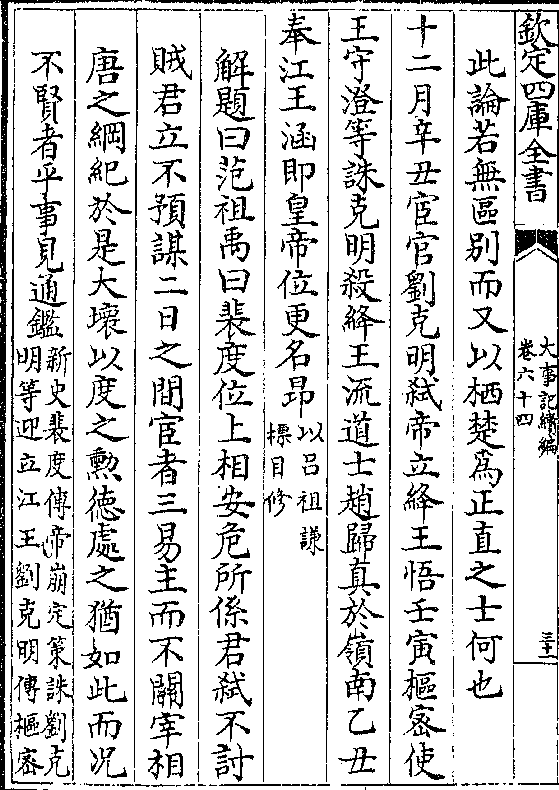 欽定四庫全書
大事記續編
卷六十四
三十一
此論若無區別而又以栖楚爲正直之士何也
十二月辛丑宦官劉克明弑帝立絳王悟壬寅樞密使
王守澄等誅克明殺絳王流道士趙歸真於嶺南乙丑
奉江王涵即皇帝位更名昂以呂祖謙
標目修
解題曰范祖禹曰裴度位上相安危所係君弑不討
賊君立不預謀二日之間宦者三易主而不關宰相
唐之綱紀於是大壞以度之勲德處之猶如此而况
不賢者乎事見通鑑新史裴度傳帝崩定策誅劉克
明等迎立江王劉克明傳樞密